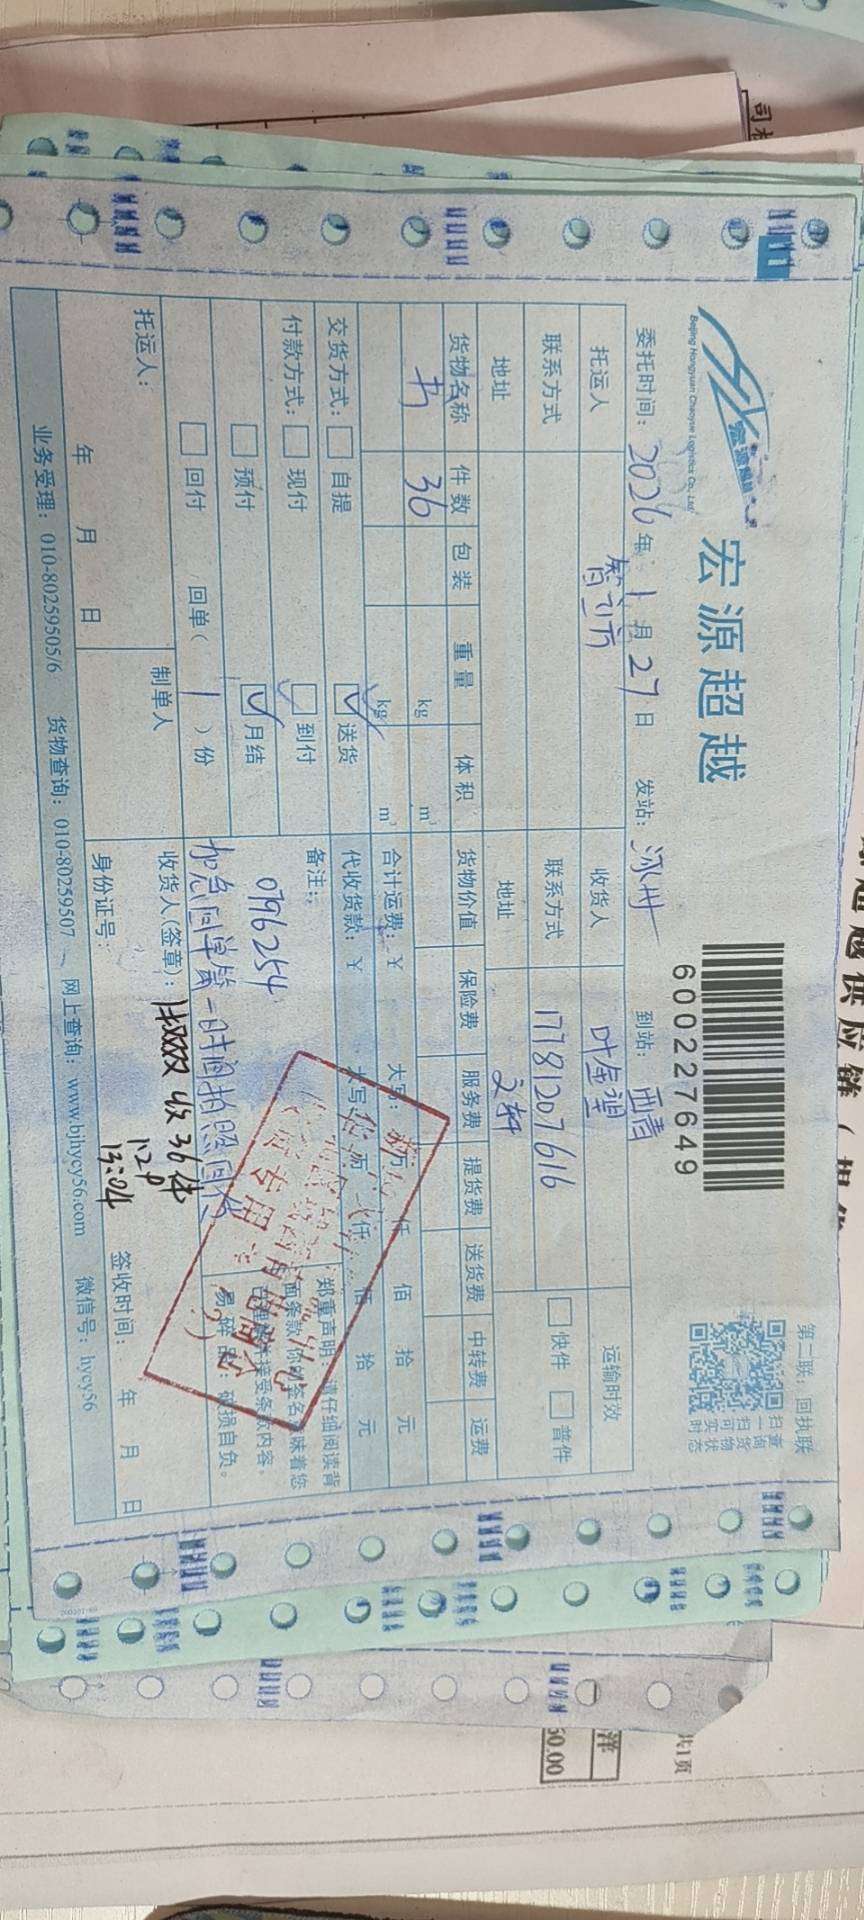 第二联：回执联
宏源超越
Beijing Hongyuan Chaoyue Logistics Co., Ltd
6000227649
扫一扫
查询货物实时状态
委托时间：2026年1月27日 发站：涿州 到站：西青
托运人 智立方 收货人 叶金望 运输时效
联系方式 联系方式 17781207616 快件 普件
地址 地址 文轩
货物名称 件数 包装 重量 体积 货物价值 保险费 服务费 提货费 送货费 中转费 运费
书 36 kg m³
kg m³ 合计运费：￥ 大写： 万 仟 佰 拾 元
交货方式： 自提 送货 代收货款：￥ 大写： 万 仟 佰 拾 元
付款方式： 现付 到付 备注：
预付 月结 0796254
回付 回单（1）份 加急回单第一时间拍照回传
郑重声明：请仔细阅读背
面条款，你的签名意味着您
易碎品：破损自负。
托运人： 制单人 收货人(签章)： 收36件
13:04
年 月 日 身份证号： 签收时间： 年 月 日
业务受理：010-80259505/6 货物查询：010-80259507 网上查询：www.bjhycy56.com 微信号：hycy56
共1页
50.00